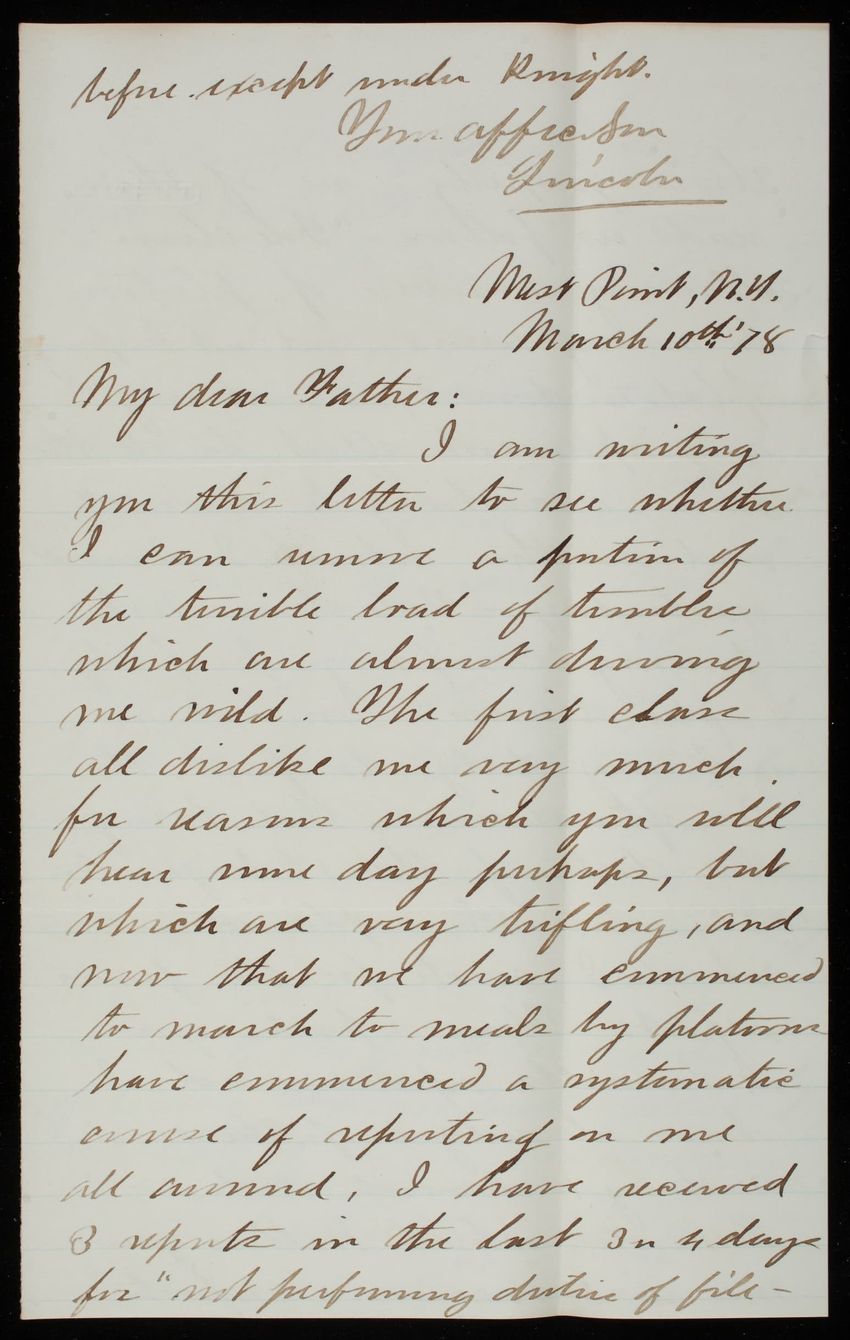 before except under Knight.
Your affec Son
Lincoln
West Point, N.Y.
March 10th '78
My dear Father:
I am writing
you this letter to see whether
I can remove a portion of
the terrible load of troubles
which are almost driving
me wild. The first class
all dislike me very much
for reasons which you will
hear some day perhaps, but
which are very trifling, and
now that we have commenced
to march to meals by platoons
have commenced a systematic
course of reporting on me
all around, I have received
3 reports in the last 3 or 4 days
for "not performing duties of file-